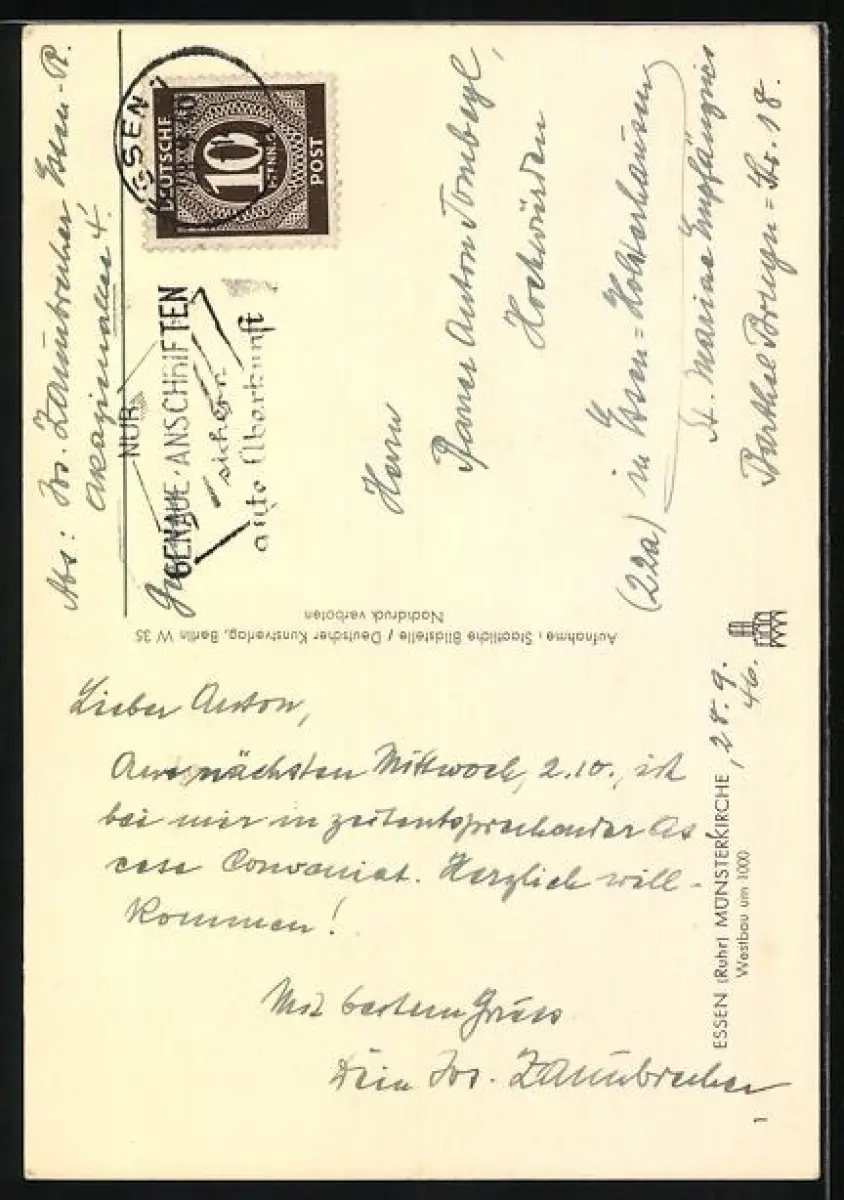 Abs: Jos. Zaunbrecher Essen-R.
Akazienallee 4.
ESSEN
DEUTSCHE
10
PFENNIG
POST
NUR
GENAUE·ANSCHRIFTEN
sichern
gute Überkunft
Herrn
Pfarrer Anton Tombeyl,
Hochwürden
(22a) in Essen=Holsterhausen
St. Mariae Empfängnis
Barthel Bruyn=Str. 18.
Aufnahme: Staatliche Bildstelle / Deutscher Kunstverlag, Berlin W 35
Nachdruck verboten
ESSEN (Ruhr) MÜNSTERKIRCHE
Westbau um 1000
, 28. 9.
46.
Lieber Anton,
Am nächsten Mittwoch, 2.10., ist
bei mir in zeitentsprechender As
cese Conveniat. Herzlich will-
kommen!
Mit bestem Gruss
Dein Jos. Zaunbrecher